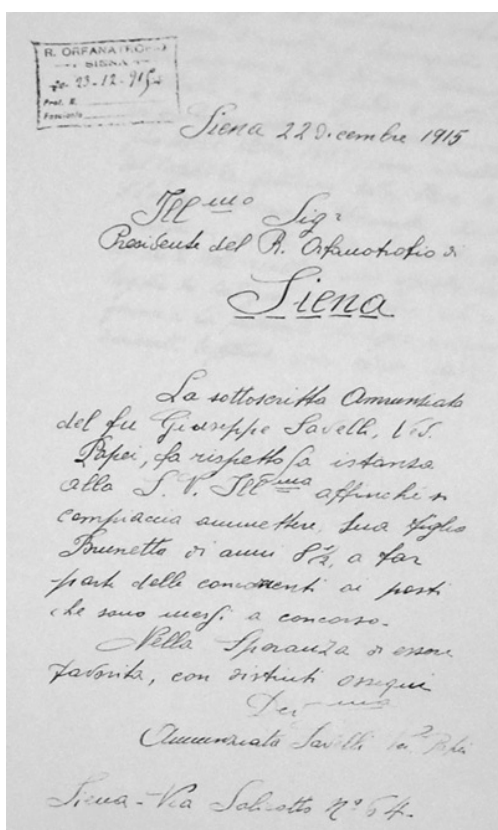 R. ORFANATROFIO
SIENA
23-12-915
Prot. N.
Fascicolo
Siena 22 Dicembre 1915
Ill mo Sigr
Presidente del R. Orfanotrofio di
Siena
La sottoscritta Annunziata
del fu Giuseppe Savelli, Ved.
Papei, fa rispettosa istanza
alla S. V. Ill ma affinchè si
compiaccia ammettere, suo figlio
Brunetto di anni 8½, a far
parte delle concorrenti ai posti
che sono messi a concorso.
Nella Speranza di essere
favorita, con distinti ossequi
Dev ma
Annunziata Savelli Ved. Papei
Siena - Via Salicotto Nº 64.